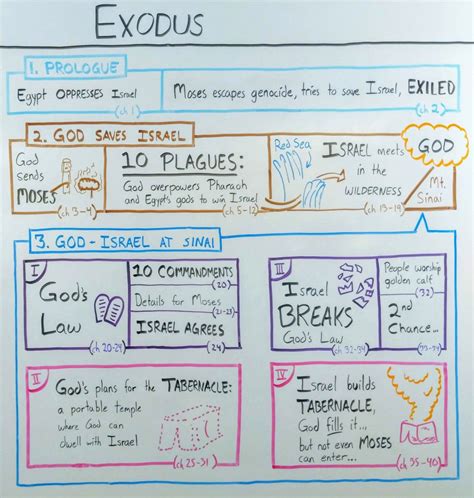 EXODUS
1. PROLOGUE
Egypt OPPRESSES Israel
(ch 1)
Moses escapes genocide, tries to save Israel, EXILED
(ch 2)
2. GOD SAVES ISRAEL
God
sends
MOSES
(ch 3-4)
10 PLAGUES:
God overpowers Pharaoh
and Egypt's gods to win Israel
(ch 5-12)
Red Sea
ISRAEL meets
in the
WILDERNESS
(ch 13-19)
GOD
Mt.
Sinai
3. GOD - ISRAEL AT SINAI
I
God's
Law
(ch 20-24)
10 COMMANDMENTS
(20)
Details for Moses
(21-23)
ISRAEL AGREES
(24)
III
Israel
BREAKS
God's Law
(ch 32-34)
People worship
golden calf
(32)
2nd
Chance...
(33-34)
II
God's plans for the TABERNACLE:
a portable temple
where God can
dwell with Israel
(ch 25-31)
IV
Israel builds
TABERNACLE,
God fills it...
but not even MOSES
can enter...
(ch 35-40)